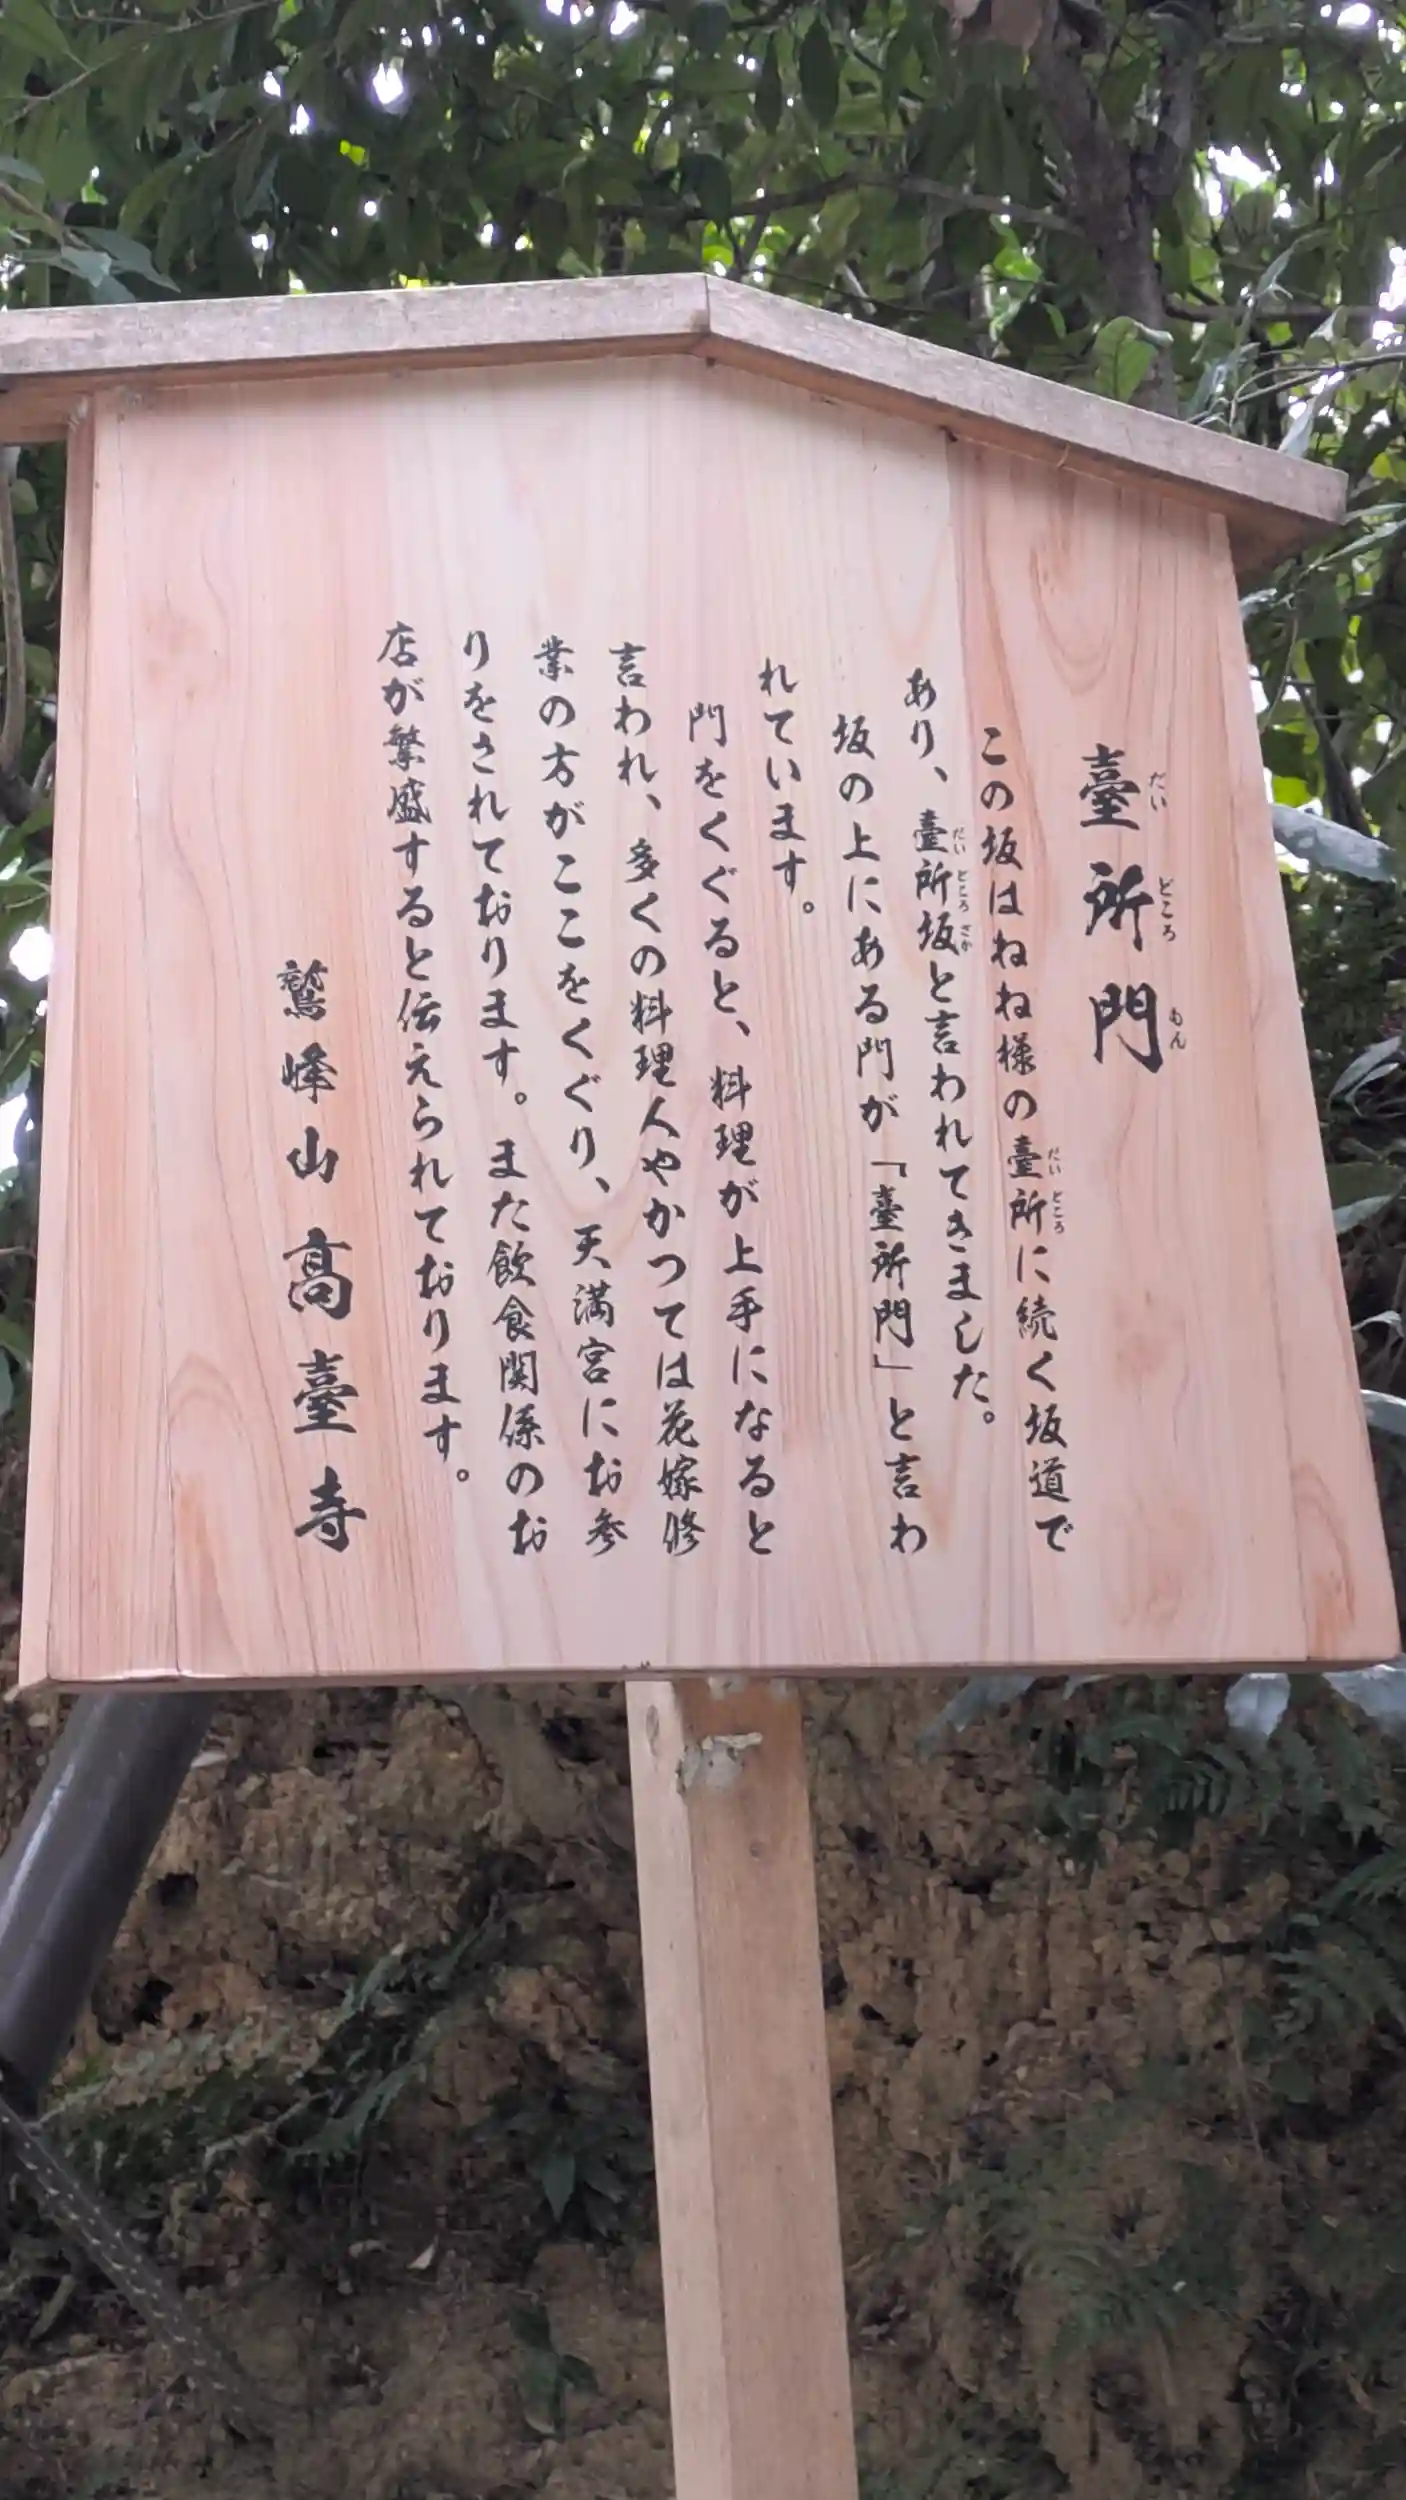 臺所門
だいどころもん
この坂はねね様の臺所に続く坂道で
だいどころ
あり、臺所坂と言われてきました。
だいどころさか
坂の上にある門が「臺所門」と言わ
れています。
門をくぐると、料理が上手になると
言われ、多くの料理人やかつては花嫁修
業の方がここをくぐり、天満宮にお参
りをされております。また飲食関係のお
店が繁盛すると伝えられております。
鷲峰山高臺寺